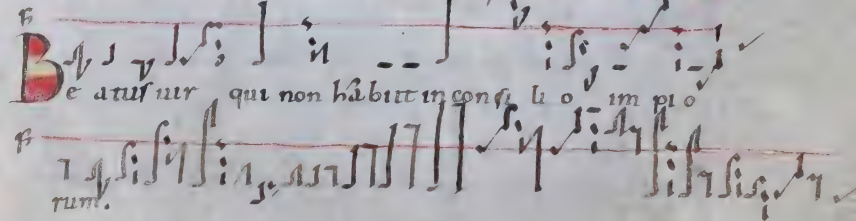 Beatus uir qui non habiit in consilio impio
rum.